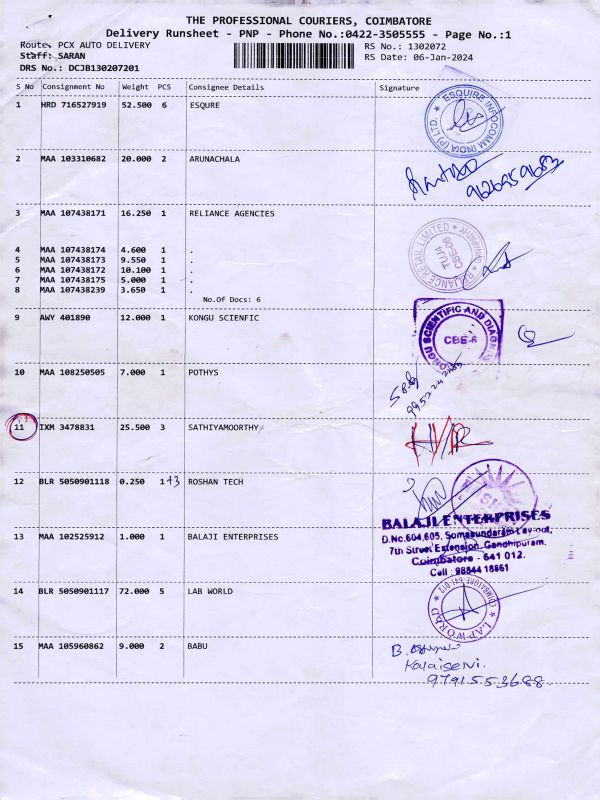 THE PROFESSIONAL COURIERS, COIMBATORE
Delivery Runsheet - PNP - Phone No.:0422-3505555 - Page No.:1
Route: PCX AUTO DELIVERY RS No.: 1302072
Staff: SARAN RS Date: 06-Jan-2024
DRS No.: DCJB130207201
S No Consignment No Weight PCS Consignee Details Signature
1 HRD 716527919 52.500 6 ESQURE
ESQUIRE INFOCOMM INDIA (P) LTD.
2 MAA 103310682 20.000 2 ARUNACHALA
9126959683
3 MAA 107438171 16.250 1 RELIANCE AGENCIES
RELIANCE RETAIL LIMITED
TUJ4
CBE-06
4 MAA 107438174 4.600 1 .
5 MAA 107438173 9.550 1 .
6 MAA 107438172 10.100 1 .
7 MAA 107438175 5.000 1 .
8 MAA 107438239 3.650 1 .
No.Of Docs: 6
9 AWY 401890 12.000 1 KONGU SCIENFIC
KONGU SCIENTIFIC AND
CBE-6
10 MAA 108250505 7.000 1 POTHYS
11 IXM 3478831 25.500 3 SATHIYAMOORTHY
12 BLR 5050901118 0.250 1+3 ROSHAN TECH
BALAJI ENTERPRISES
D.No.604,605, Somasundaram Lay-out,
7th Street Extension, Gandhipuram,
Coimbatore - 641 012.
Cell : 98844 18861
13 MAA 102525912 1.000 1 BALAJI ENTERPRISES
14 BLR 5050901117 72.000 5 LAB WORLD
COIMBATORE-641 012
15 MAA 105960862 9.000 2 BABU
B.
Kalaiselvi.
9791553688